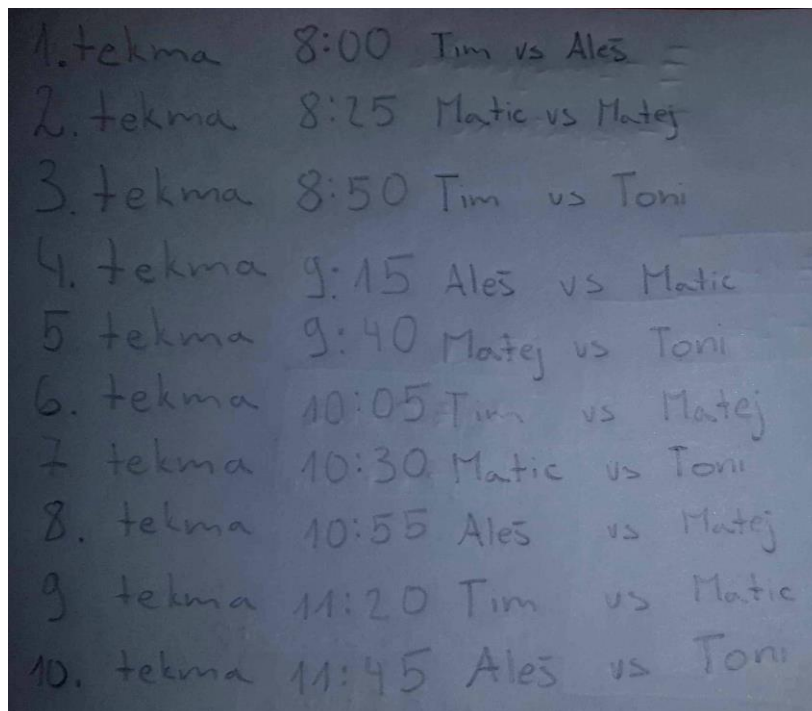 1. tekma 8:00 Tim vs Aleš
2. tekma 8:25 Matic vs Matej
3. tekma 8:50 Tim vs Toni
4. tekma 9:15 Aleš vs Matic
5 tekma 9:40 Matej vs Toni
6. tekma 10:05 Tim vs Matej
7 tekma 10:30 Matic vs Toni
8. tekma 10:55 Aleš vs Matej
9 tekma 11:20 Tim vs Matic
10. tekma 11:45 Aleš vs Toni